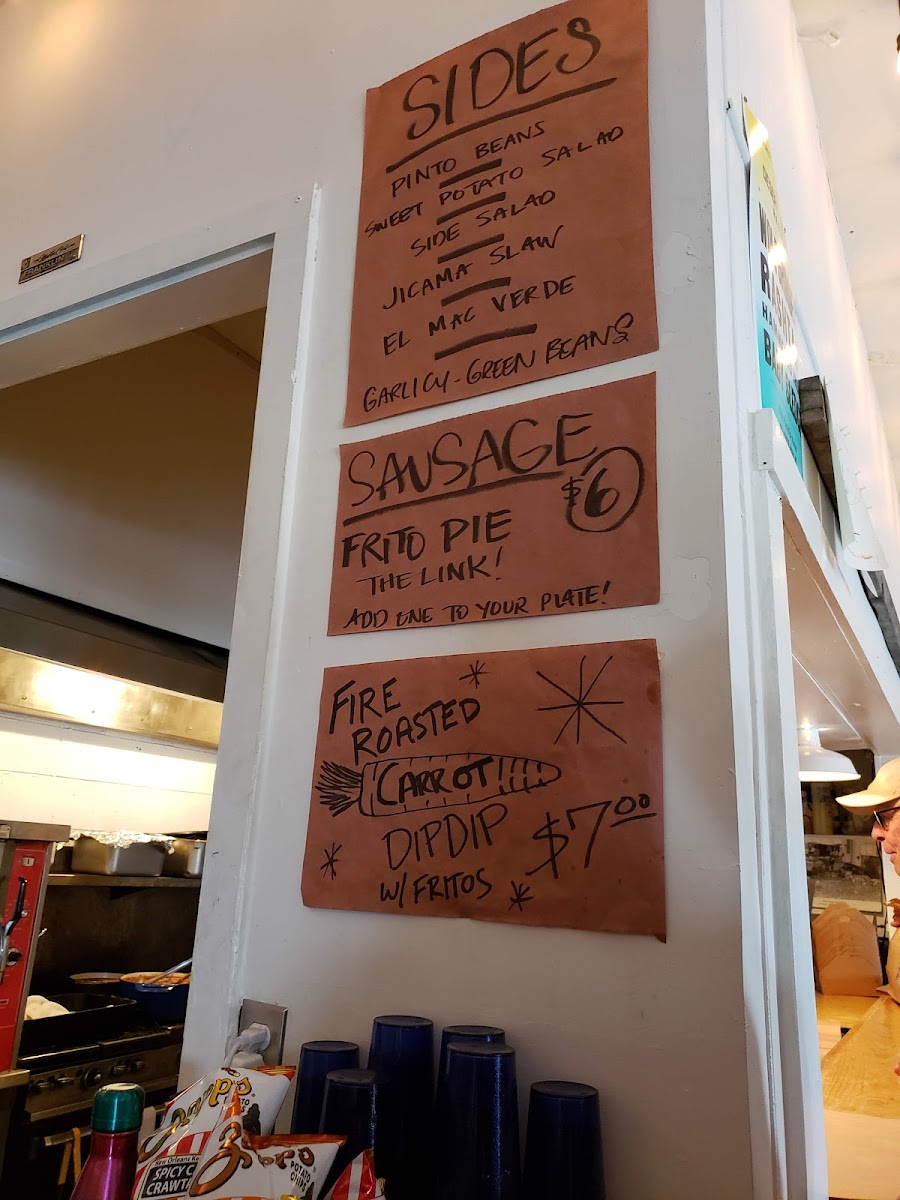 SIDES
PINTO BEANS
SWEET POTATO SALAD
SIDE SALAD
JICAMA SLAW
EL MAC VERDE
GARLICY-GREEN BEANS
SAUSAGE
$6
FRITO PIE
THE LINK!
ADD ONE TO YOUR PLATE!
FIRE
ROASTED
CARROT
DIPDIP
W/ FRITOS
$7.00
FRANKLIN
Zapp's
POTATO
CHIPS
New Orleans
SPICY
CRAWTA